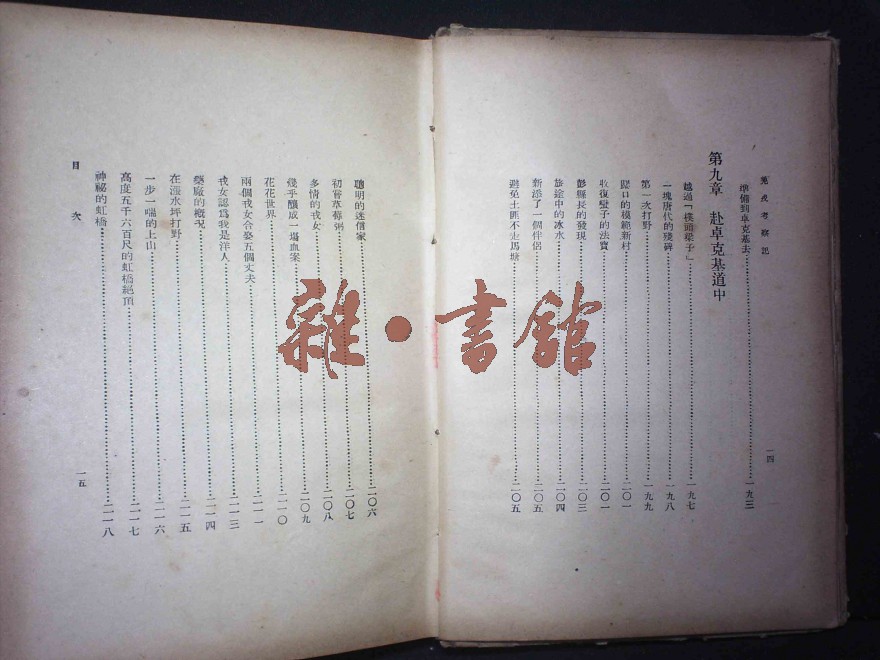 羌戎考察記
一四
準備到卓克基去 一九三
第九章 赴卓克基道中
越過「樸頭梁子」 一九七
一塊唐代的殘碑 一九八
第一次打野 一九九
歸口的模範新村 二〇一
收復蠻子的法寶 二〇一
彭縣長的發現 二〇三
旅途中的冰水 二〇四
新添了一個伴侶 二〇五
避免土匪不走馬塘 二〇五
聰明的迷信家 二〇六
初嘗草莓粥 二〇七
多情的戎女 二〇八
幾乎釀成一場血案 二〇九
花花世界 二一〇
兩個戎女合娶五個丈夫 二一一
戎女認爲我是洋人 二一三
藥廠的概況 二一四
在漫水坪打野 二一五
一步一喘的上山 二一六
高度五千六百尺的虹橋絕頂 二一七
神祕的虹橋 二一八
目次
一五
雜·書館